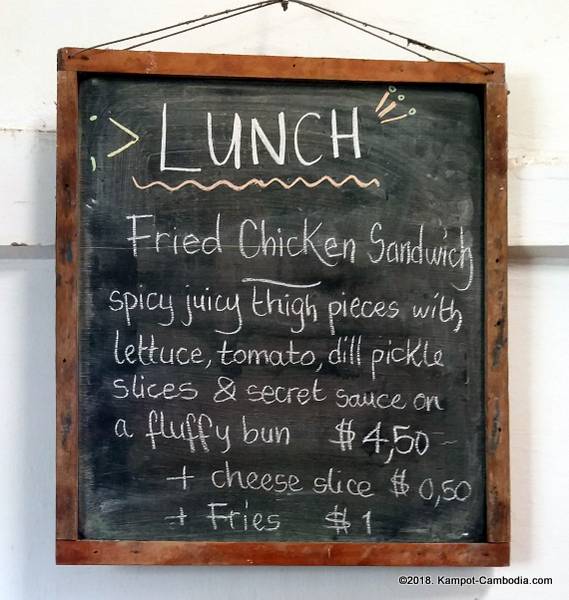 LUNCH
Fried Chicken Sandwich
spicy juicy thigh pieces with
lettuce, tomato, dill pickle
slices & secret sauce on
a fluffy bun $ 4,50
+ cheese slice $ 0,50
+ Fries $ 1
©2018. Kampot-Cambodia.com